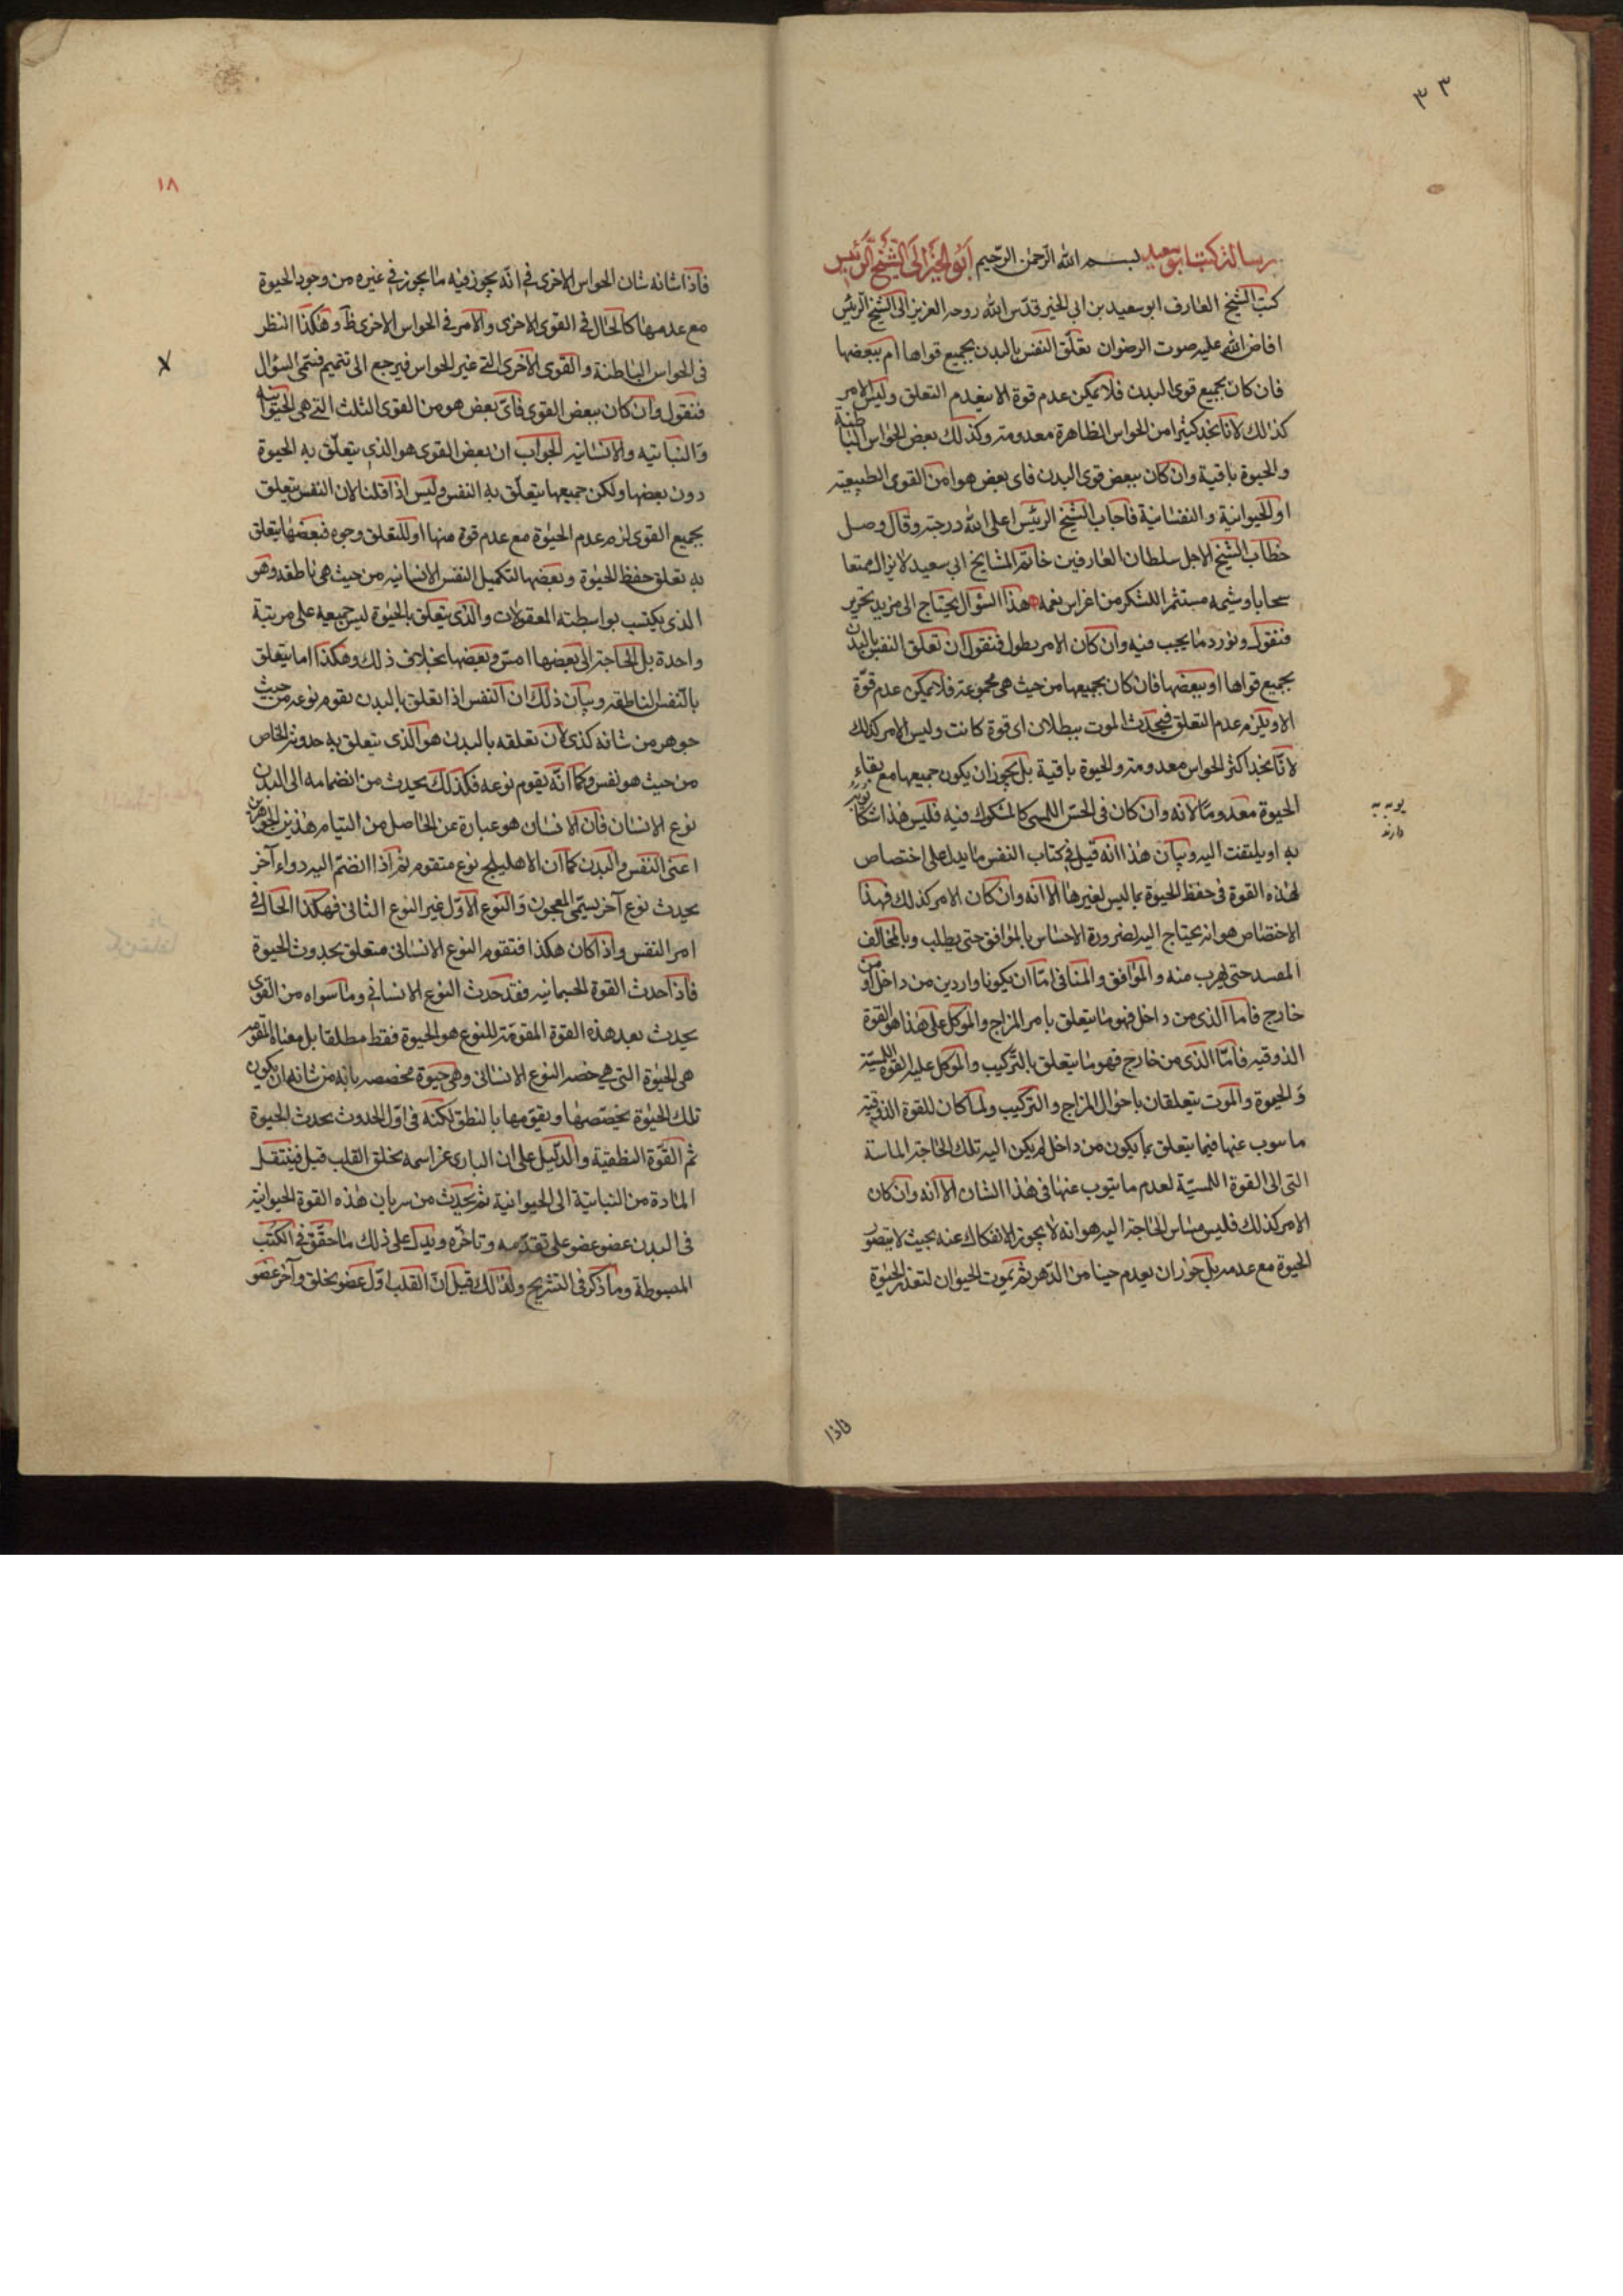 ٣٣
رسالة كتب ابو سعيد بسم الله الرحمن الرحيم ابو الخير الى الشيخ الرئيس
كتب الشيخ العارف ابو سعيد بن ابي الخير قدس الله روحه العزيز الى الشيخ الرئيس
افاض الله عليه صوت الرضوان تعلق النفس بالبدن بجميع قواها ام ببعضها
فان كان بجميع قوى البدن فلا يمكن عدم قوة الا بتعدم التعلق وليس الامر
كذلك لانا نجد كثيرا من الحواس الظاهرة معدومة وكذلك بعض الحواس الباطنة
والحيوة باقية وان كان ببعض قوى البدن فاى بعض هو امن القوى الطبيعية
او الحيوانية والنفسانية فاجاب الشيخ الرئيس اعلى الله درجته وقال وصل
خطاب الشيخ الاجل سلطان العارفين خاتم المشايخ ابي سعيد لا يزال ممتعا
سحابا وشيمه مستثمر اللشكر من اغراس نعمه هذا السؤال يحتاج الى مزيد تحرير
فنقول ونورد ما يجب فيه وان كان الامر يطول فنقول ان تعلق النفس بالبدن
بجميع قواها او ببعضها فان كان بجميعها من حيث هى مجموعة فلا يمكن عدم قوة
الا ويلزم عدم التعلق فيحدث الموت ببطلان اى قوة كانت وليس الامر كذلك
لانا نجد اكثر الحواس معدومة والحيوة باقية بل يجوز ان يكون جميعها مع بقاء
الحيوة معدوما لانه وان كان فى الحس اللمسى كالمشكوك فيه فليس هذا شكا
به او يلتفت اليه وبيان هذا انه قيل فى كتاب النفس ما يدل على اختصاص
لهذه القوة فى حفظ الحيوة بما ليس لغيرها الا انه وان كان الامر كذلك فهذا
الاختصاص هو انه يحتاج اليه لضرورة الاحساس بالموافق حتى يطلب وبالمخالف
المفسد حتى يهرب منه والموافق والمنافى اما ان يكونا واردين من داخل او من
خارج فاما الذى من داخل فهو ما يتعلق بامر المزاج والموكل على هذا هو القوة
الذوقيه فاما الذى من خارج فهو ما يتعلق بالتركيب والموكل عليه القوة اللمسية
والحيوة والموت يتعلقان باحوال المزاج والتركيب ولما كان للقوة الذوقية
ما سوب عنها فيما يتعلق بما يكون من داخل لم يكن اليه تلك الحاجة الماسة
التى الى القوة اللمسية لعدم ما ينوب عنها فى هذا الشان الا انه وان كان
الامر كذلك فليس مساس الحاجة اليه هو انه لا يجوز الانفكاك عنه بحيث لا يتصور
الحيوة مع عدمه بل جوز ان يعدم حينا من الدهر ثم يموت الحيوان لتعذر الحيوة
فاذا
١٨
فاذا شانه شان الحواس الاخرى فى انه يجوز فيه ما يجوز فى غيره من وجود الحيوة
مع عدمها كالحال فى القوى الاخرى والامر فى الحواس الاخرى ظ وهكذا النظر
فى الحواس الباطنة والقوى الاخرى التى غير الحواس فيرجع الى تتميم فنتمى السؤال
فنقول وان كان ببعض القوى فاى بعض هو من القوى الثلث التى هى الحيوانيه
والنباتيه والانسانيه الجواب ان بعض القوى هو الذى يتعلق به الحيوة
دون بعضها ولكن جميعها يتعلق به النفس وليس اذا قلنا لان النفس يتعلق
بجميع القوى لزم عدم الحيوة مع عدم قوة منها اوللتعلق وجوه فبعضها يتعلق
به تعلق حفظ الحيوة وبعضها لتكميل النفس الانسانيه من حيث هى ناطقه وهو
الذى يكتسب بواسطته المعقولات والذى يتعلق بالحيوة ليس جميعه على مرتبة
واحدة بل الحاجة الى بعضها امس وبعضها بخلاف ذلك وهكذا اما يتعلق
بالنفس الناطقه وبيان ذلك ان النفس اذا تعلق بالبدن يقوم نوعه من حيث
جوهر من شانه كذى لان تعلقه بالبدن هو الذى يتعلق به حدوثه الخاص
من حيث هو نفس وكما انه يقوم نوعه فكذلك يحدث من انضمامه الى البدن
نوع الانسان فان الانسان هو عبارة عن الحاصل من التيام هذين الجوهرين
اعنى النفس والبدن كما ان الاهليلج نوع متقوم ثم اذا انضم اليه دواء آخر
يحدث نوع آخر يسمى المعجون والنوع الاول غير النوع الثانى فهكذا الحال فى
امر النفس واذا كان هكذا فتقوم النوع الانسانى متعلق بحدوث الحيوة
فاذا حدث القوة الجسمانيه فقد حدث النوع الانسانى وما سواه من القوى
يحدث بعد هذه القوة المقومة للنوع هو الحيوة فقط مطلقا بل معناه المقوم
هى الحيوة التى هى خصر النوع الانسانى وهى حيوة مخصصه بانه من شانه ان يكون
تلك الحيوة يخصصها ويقومها بالنطق لكنه فى اول الحدوث يحدث الحيوة
ثم القوة النطقية والدليل على ان البارى عز اسمه يخلق القلب قبل فينتقل
المادة من النباتية الى الحيوانية ثم يحدث من سريان هذه القوة الحيوانية
فى البدن عضو عضو على تقدمه وتاخره ويدل على ذلك ما حقق فى الكتب
المبسوطة وما ذكر فى التشريح ولذلك قيل ان القلب اول عضو يخلق وآخر عضو